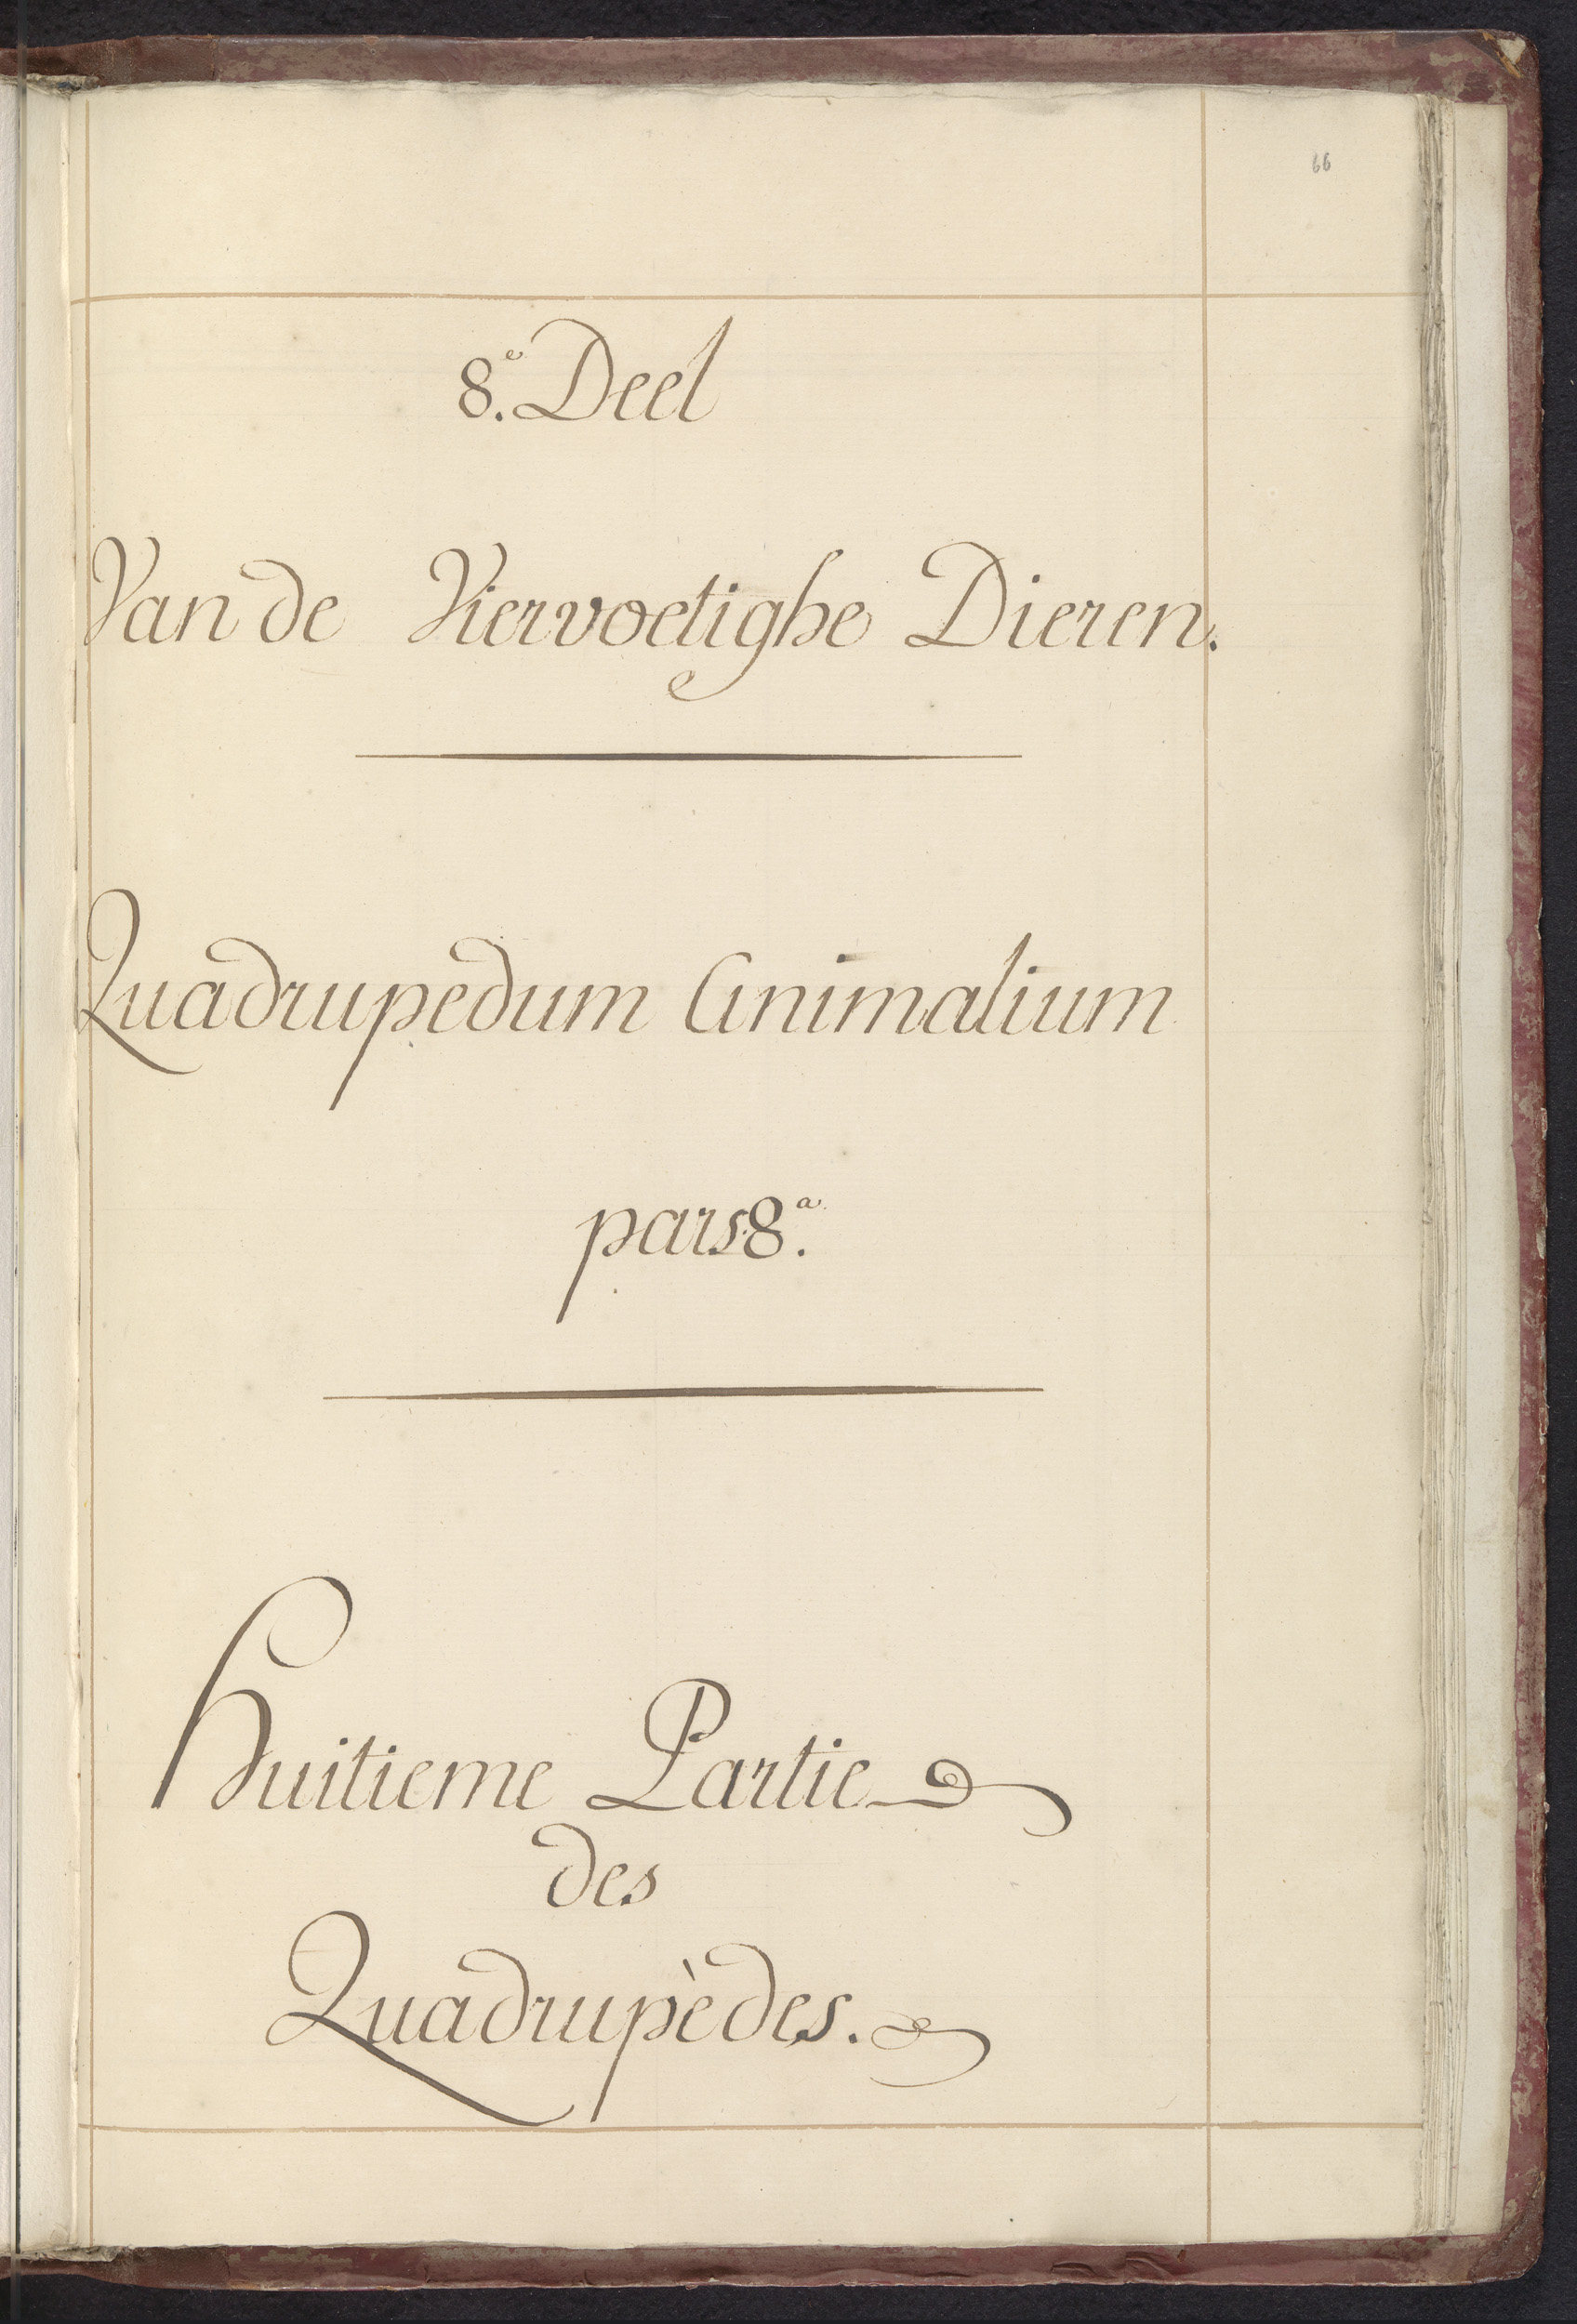 66
8.e Deel
Van de Viervoetighe Dieren.
Quadrupedum Animalium
pars 8.a
Huitieme Partie
des
Quadrupèdes.